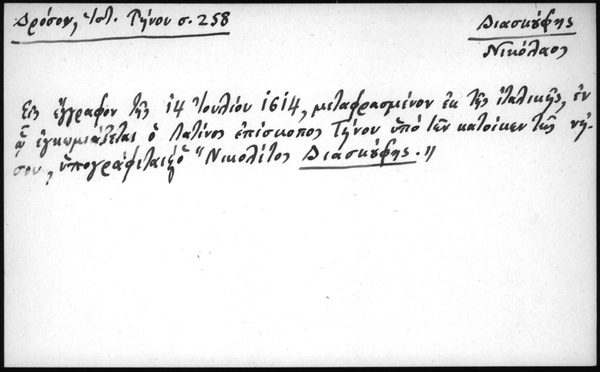 Δρόσου, Ἱστ. Τήνου σ. 258
Διασκούφης
Νικόλαος
Εἰς ἔγγραφον τῆς 14 Ἰουλίου 1614, μεταφρασμένον ἐκ τῆς ἰταλικῆς, ἐν
ᾧ ἐγκωμιάζεται ὁ Λατῖνος ἐπίσκοπος Τήνου ὑπὸ τῶν κατοίκων τῆς νή-
σου, ὑπογράφεται ὁ "Νικολίτος Διασκούφης."